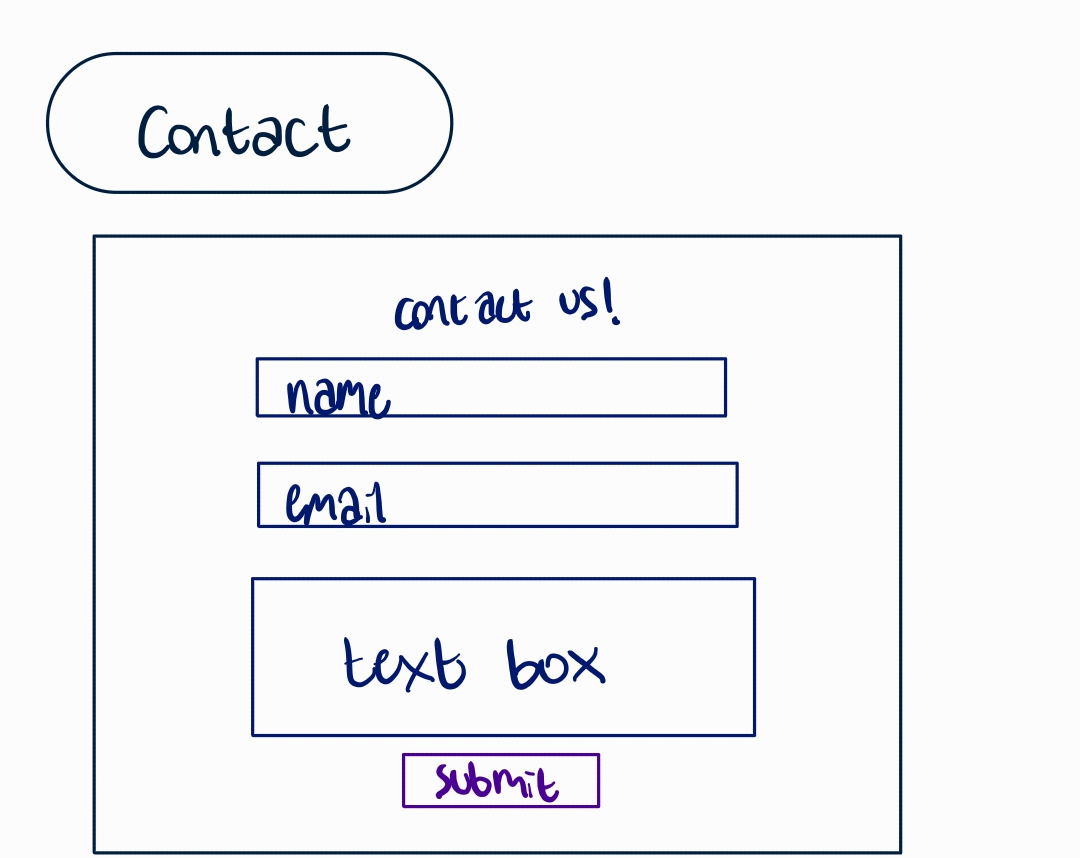 Contact
contact us!
name
email
text box
submit